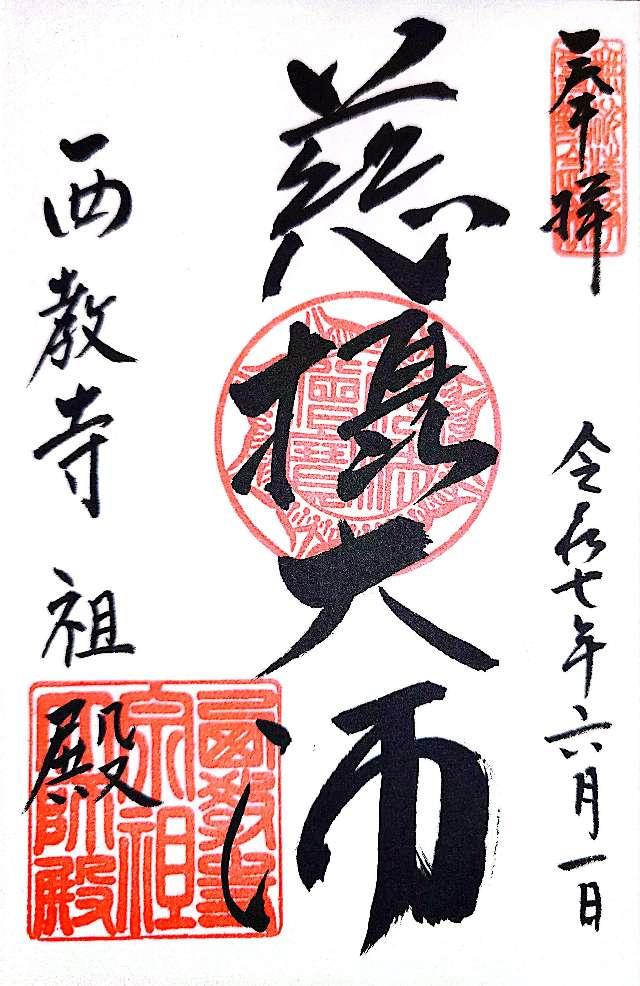 奉拝
令和七年六月一日
慈摂大師
西教寺 祖殿
僧寶
西教寺
宗祖